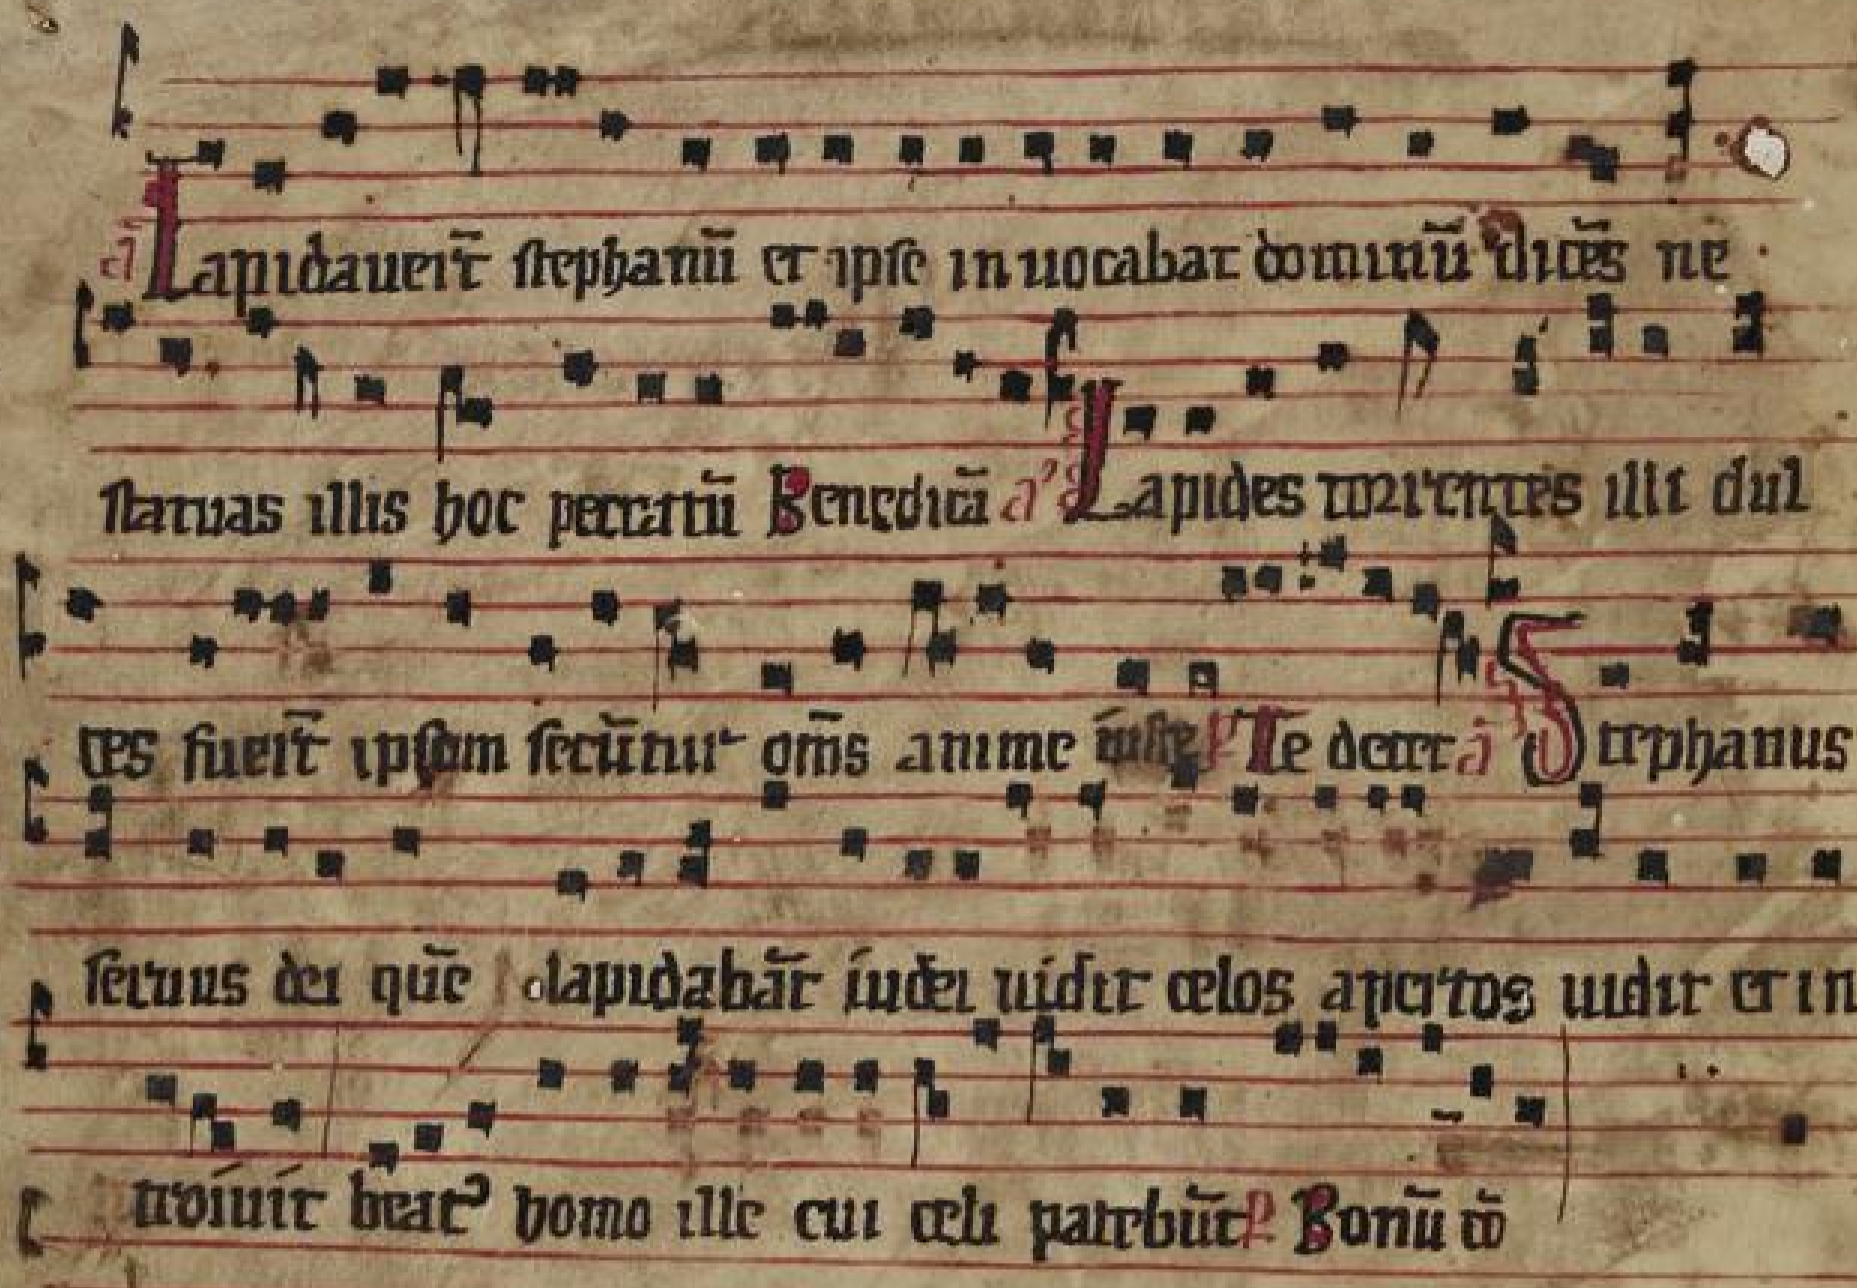 a̅ Lapidauer̅t stephanu̅ et ipse inuocabat dominu̅ dice̅s ne
statuas illis hoc peccatu̅ Benedica̅ a̅ Lapides torrentes illi dul
ces fuer̅t ipsum secu̅tur om̅s anime iuste p̅ Te decet a̅ Stephanus
seruus dei que̅ lapidaba̅t iudei uidit celos apertos uidit et in
troiuit beatꝰ homo ille cui celi patebu̅t p̅ Bonu̅ co̅